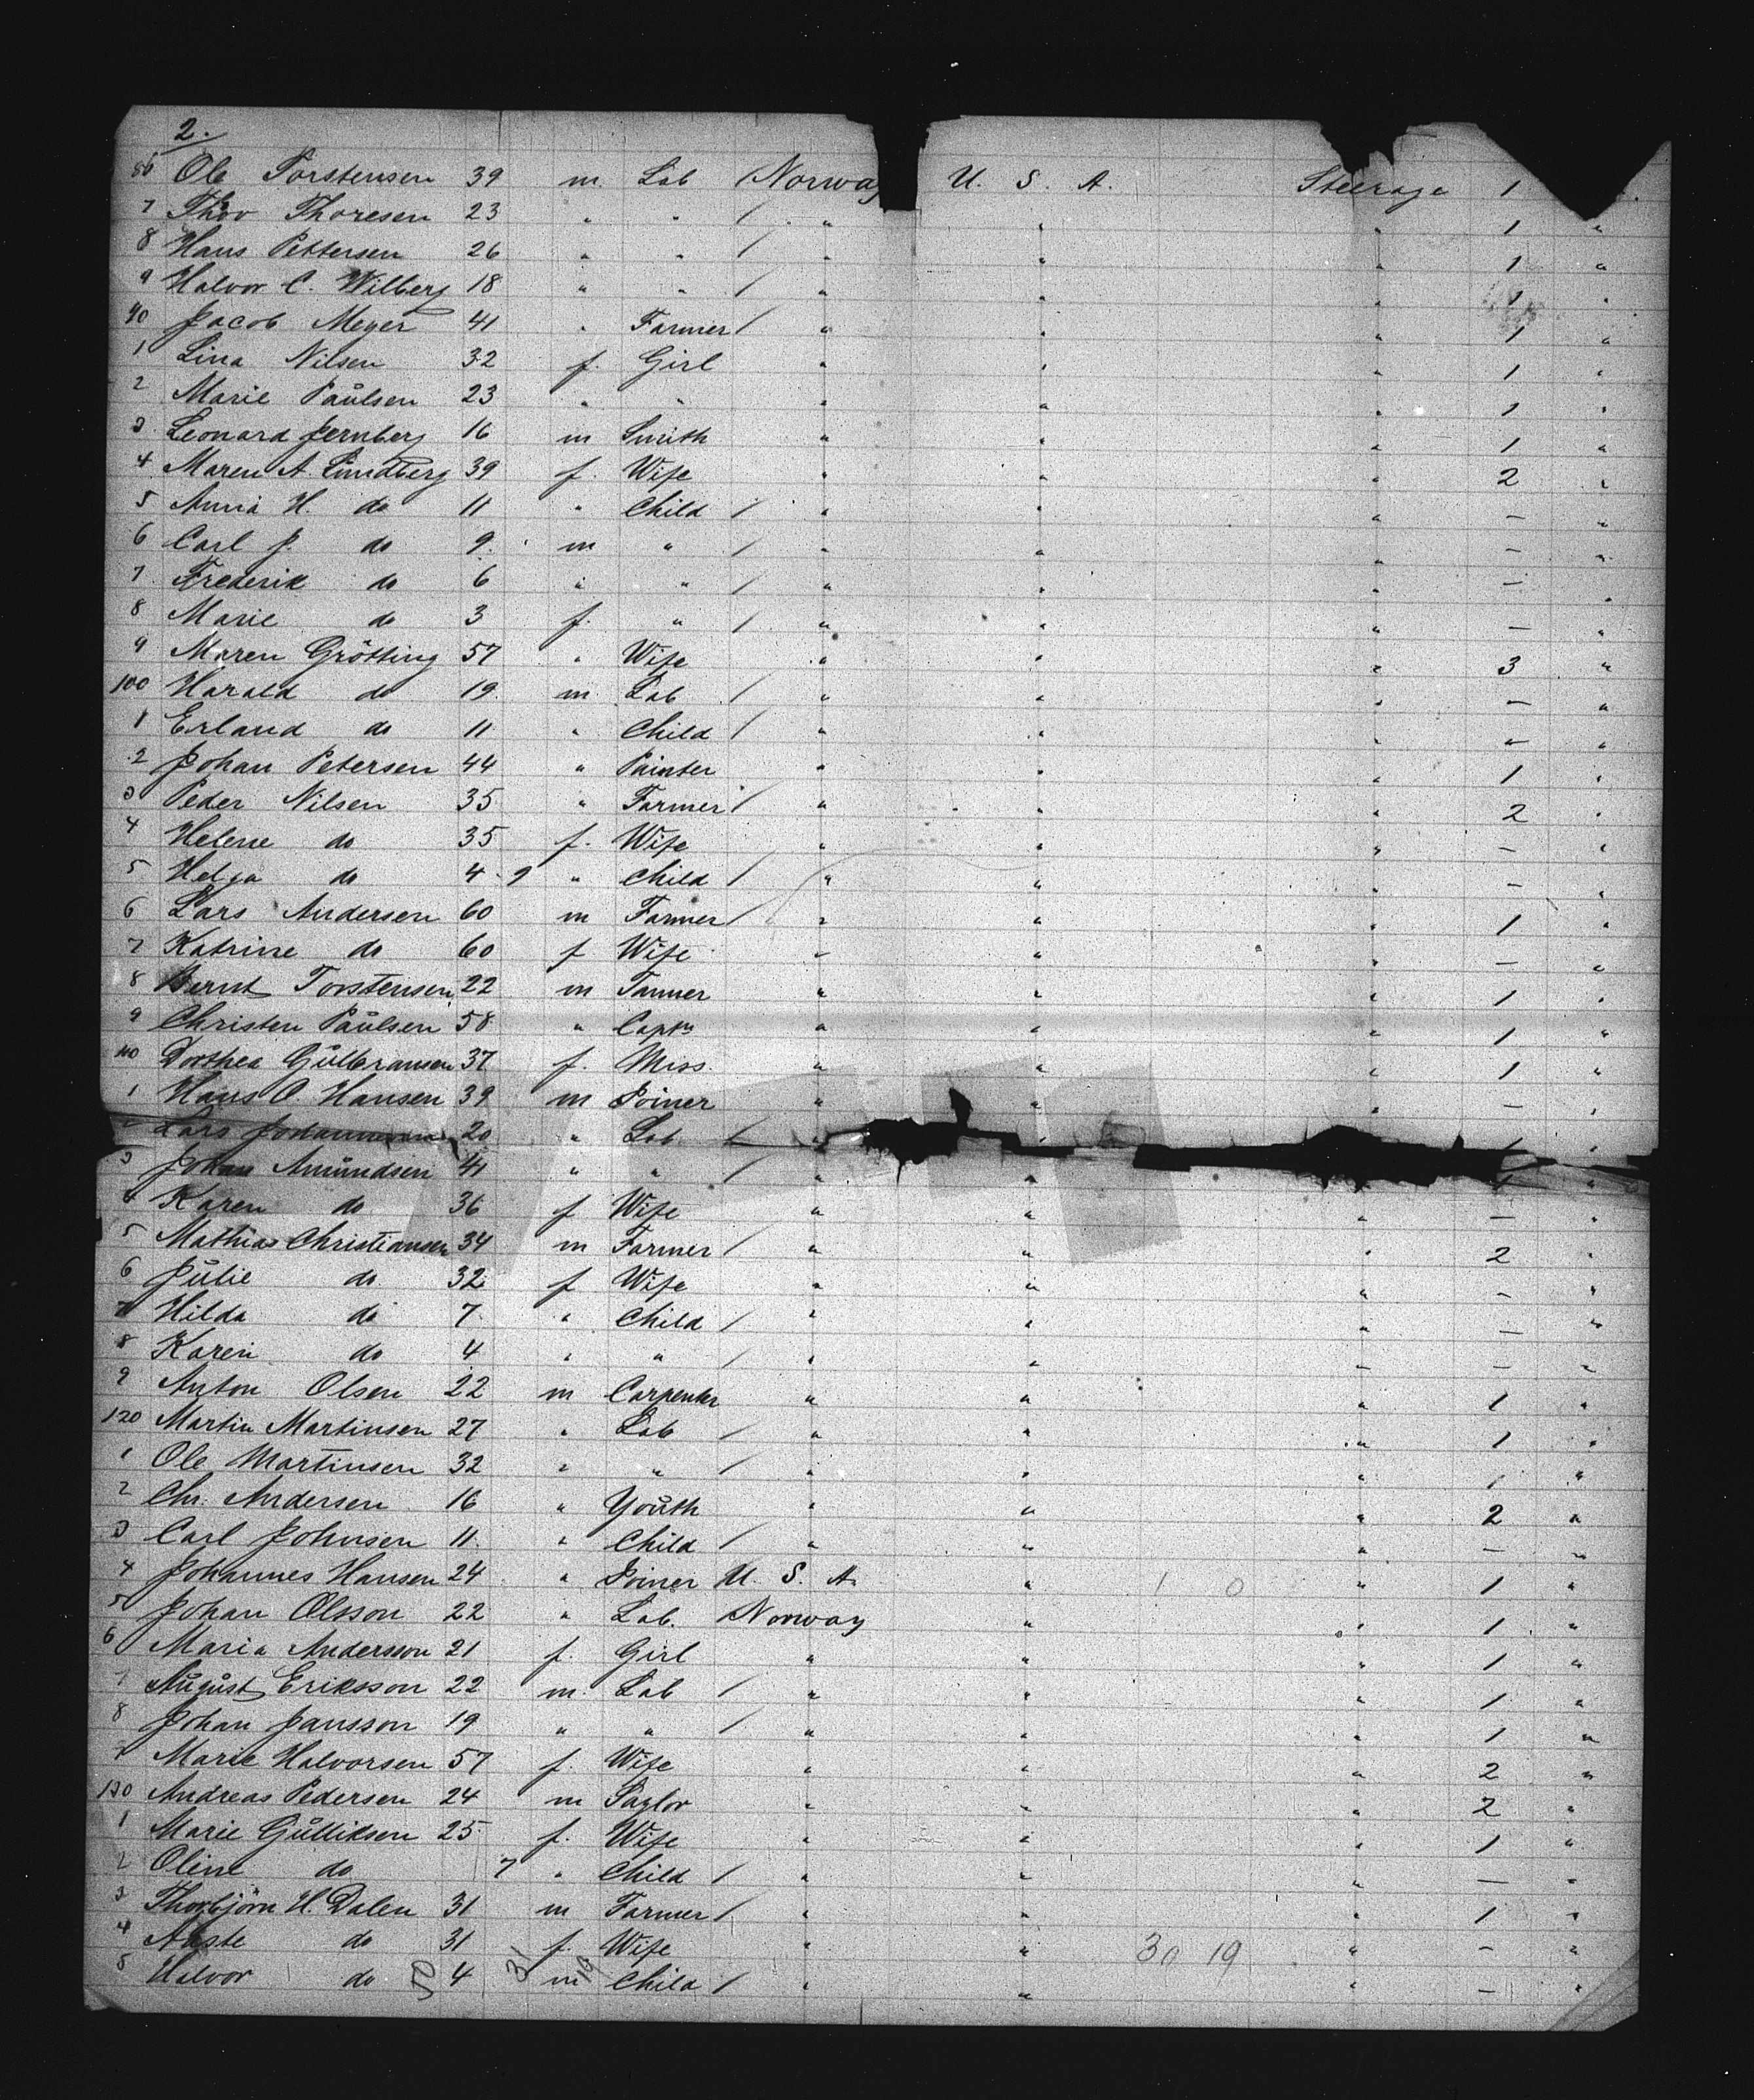 2.
86 Ole Torstensen 39 m. Lab Norway U. S. A. Steerage 1
7 Thov Thoresen 23 " " / " " " 1 "
8 Hans Pettersen 26 " " / " " " 1 "
9 Halvor C. Wilberg 18 " " / " " " 1 "
90 Jacob Meyer 41 " Farmer / " " " 1 "
1 Lina Nilsen 32 f. Girl " " " 1 "
2 Marie Paulsen 23 " " " " " 1 "
3 Leonard Jernberg 16 m Smith " " " 1 "
4 Maren A. Lundberg 39 f. Wife " " " 2 "
5 Anna H. do 11 " Child / " " " — "
6 Carl J. do 9 m " / " " " — "
7 Frederik do 6 " " / " " " — "
8 Marie do 3 f. " / " " " — "
9 Maren Grötting 57 " Wife " " " 3 "
100 Harald do 19 m Lab / " " " — "
1 Erland do 11 " Child / " " " — "
2 Johan Petersen 44 " Painter " " " 1 "
3 Peder Nilsen 35 " Farmer / " " " 2 "
4 Helene do 35 f. Wife " " " — "
5 Helga do 4 " Child / " " " — "
6 Lars Andersen 60 m Farmer / " " " 1 "
7 Katrine do 60 f Wife " " " — "
8 Bernt Torstensen 22 m Tanner " " " 1 "
9 Christen Paulsen 58 " Captn " " " 1 "
110 Dorthea Gulbransen 37 f. Miss. " " " 1 "
1 Hans O. Hansen 39 m Joiner " " " — "
Lars 20 " Lab / " " 1 "
3 Johan Amundsen 41 " " / " " "
Karen do 36 f Wife " " " — "
5 Mathias Christiansen 34 m Farmer / " " " 2 "
6 Julie do 32 f Wife " " " — "
7 Hilda do 7 " Child / " " " — "
8 Karen do 4 " " / " " — — "
9 Anton Olsen 22 m Carpenter " " " 1 "
120 Martin Martinsen 27 " Lab / " " " 1 "
1 Ole Martinsen 32 " " / " " " 1 "
2 Chr. Andersen 16 " Youth " " " 2 "
3 Carl Johnsen 11 " Child / " " " — "
4 Johannes Hansen 24 " Joiner U. S. A. " 1 0 " 1 "
5 Johan Olsson 22 " Lab. Norway " " 1 "
6 Maria Andersson 21 f. Girl " " " 1 "
7 August Eriksson 22 m. Lab / " " " 1 "
8 Johan Jansson 19 " " / " " " 1 "
9 Marie Halvorsen 57 f. Wife " " " 2 "
130 Andreas Pedersen 24 m Taylor " " " 2 "
1 Marie Gulliksen 25 f. Wife " " " 1 "
2 Oline do 7 " Child / " " " — "
3 Thorbjörn H. Dalen 31 m Farmer / " " " 1 "
4 do 31 f. Wife " " 30 19 " — "
5 Halvor do 50 4 31 m 19 Child / " " " — "